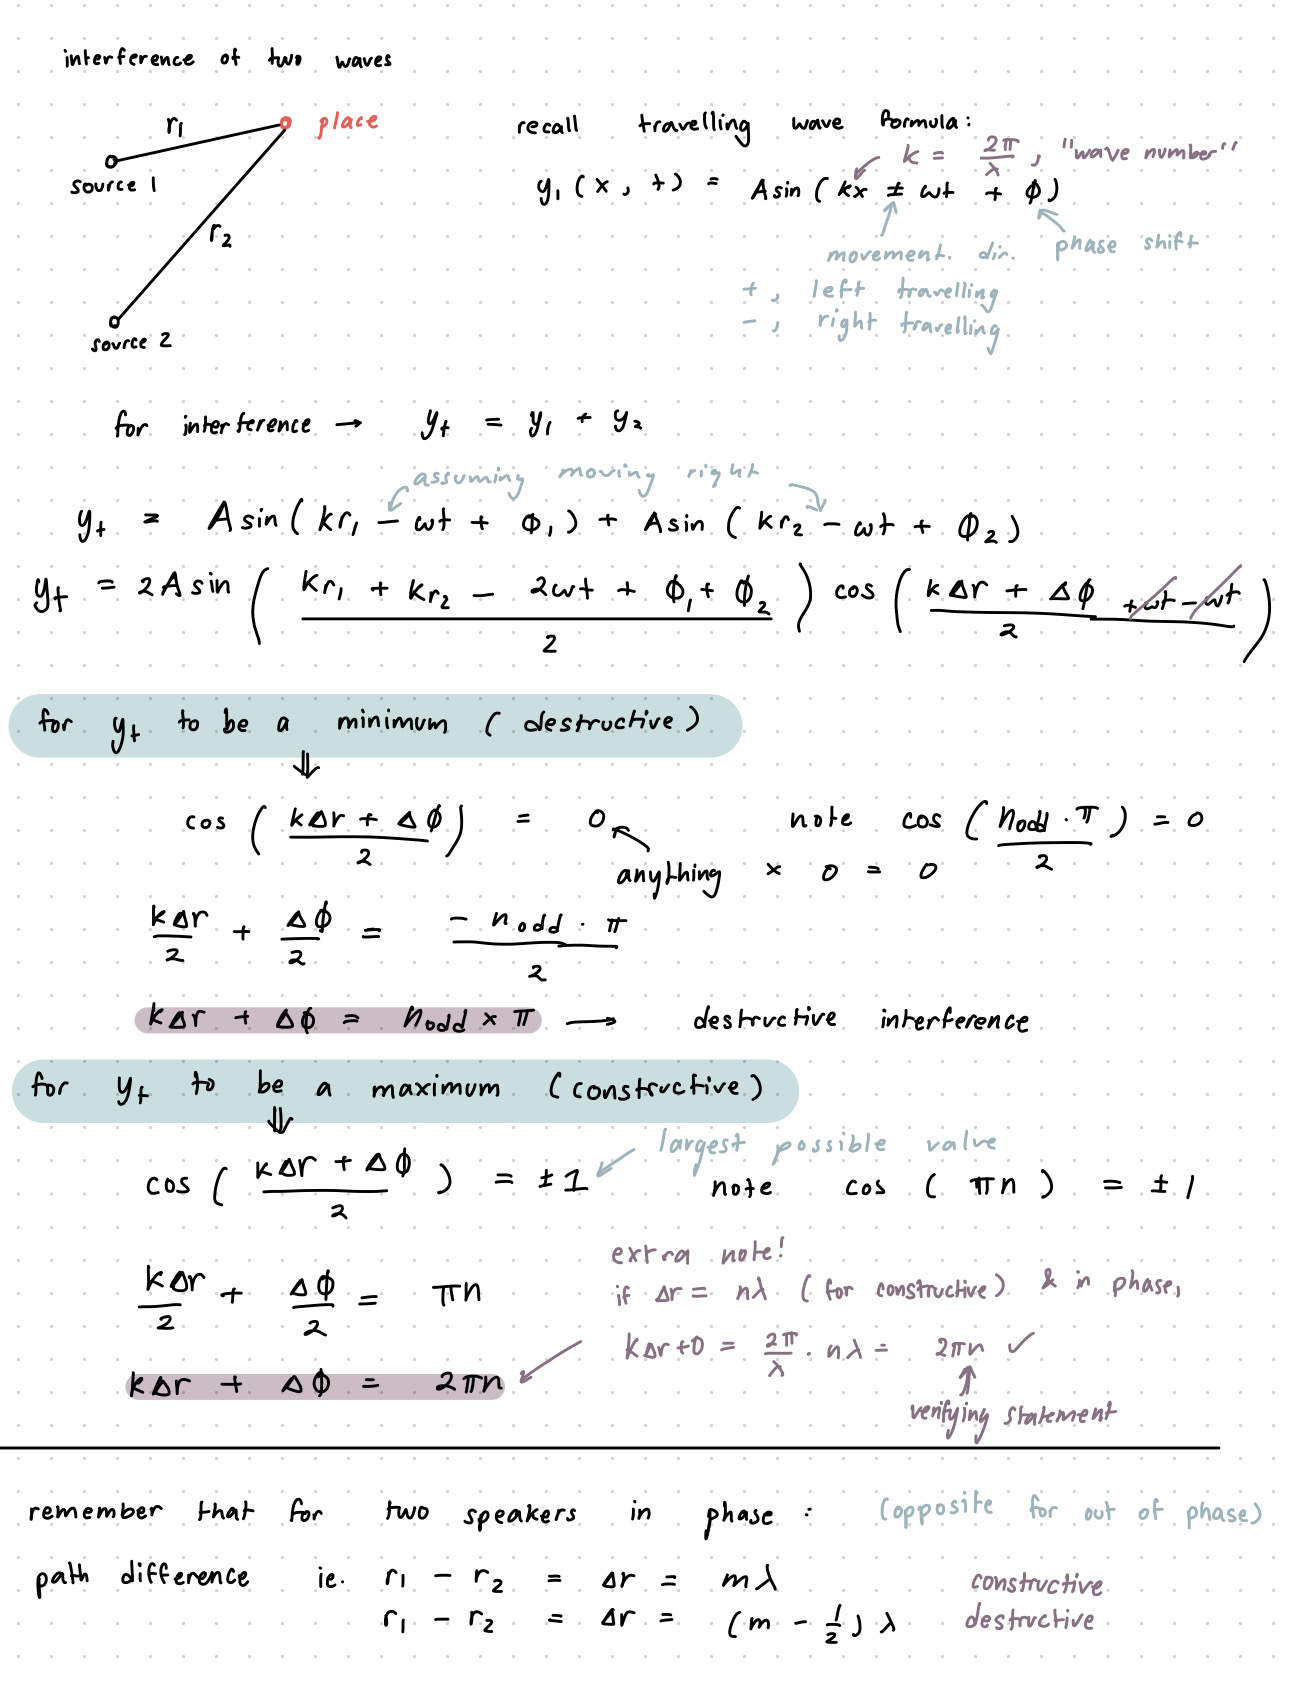 interference of two waves
r₁
place
source 1
r₂
source 2
recall travelling wave formula:
k = 2π/λ, "wave number"
y₁(x, t) = A sin(kx ± ωt + ϕ)
movement. dir.
phase shift
+, left travelling
-, right travelling
for interference → y_t = y₁ + y₂
assuming moving right
y_t = A sin(kr₁ - ωt + ϕ₁) + A sin(kr₂ - ωt + ϕ₂)
y_t = 2A sin((kr₁ + kr₂ - 2ωt + ϕ₁ + ϕ₂)/2) cos((kΔr + Δϕ + ωt - ωt)/2)
for y_t to be a minimum (destructive)
⇓
cos((kΔr + Δϕ)/2) = 0
note cos((n_odd · π)/2) = 0
anything × 0 = 0
kΔr/2 + Δϕ/2 = (- n_odd · π)/2
kΔr + Δϕ = n_odd × π → destructive interference
for y_t to be a maximum (constructive)
⇓
largest possible value
cos((kΔr + Δϕ)/2) = ±1
note cos(πn) = ±1
extra note!
if Δr = nλ (for constructive) & in phase,
kΔr/2 + Δϕ/2 = πn
kΔr+0 = 2π/λ · nλ = 2πn ✓
kΔr + Δϕ = 2πn
verifying statement
remember that for two speakers in phase: (opposite for out of phase)
path difference ie. r₁ - r₂ = Δr = mλ constructive
r₁ - r₂ = Δr = (m - 1/2)λ destructive